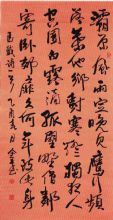 灞原風雨定晚見雁行頻
落葉他鄉樹寒燈獨夜人
空園白露滴孤壁野僧鄰
寄臥郊扉久何年致此身
馬戴詩一首乙酉